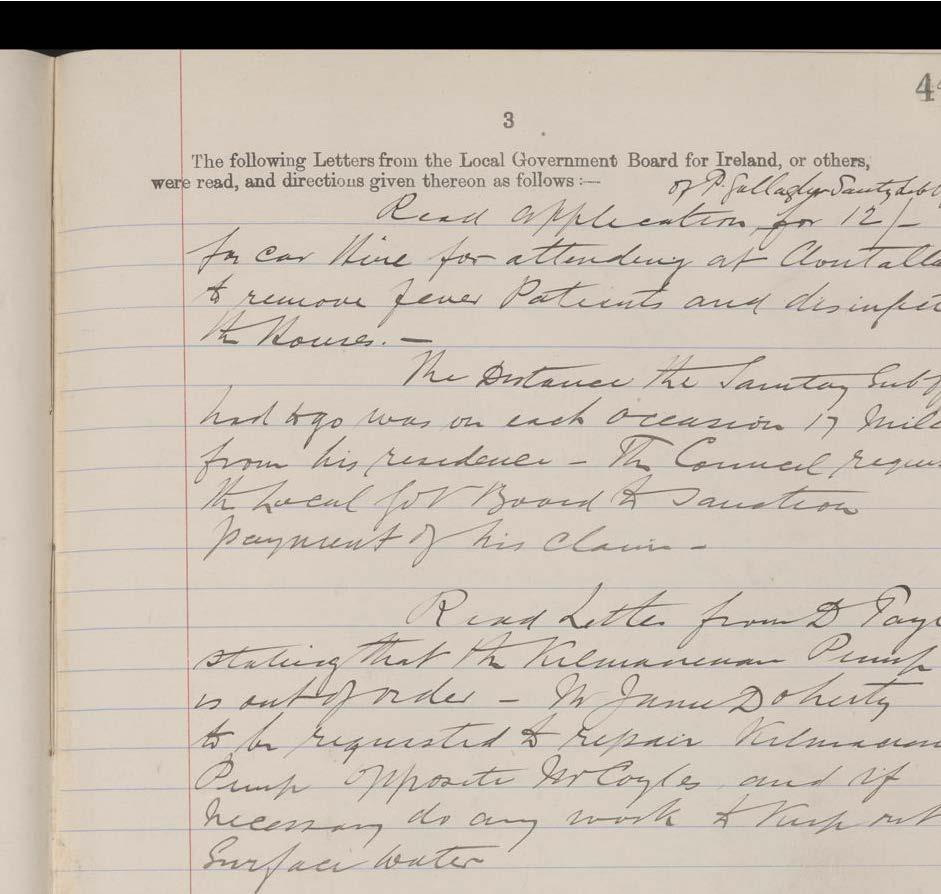 4
3
The following Letters from the Local Government Board for Ireland, or others,
were read, and directions given thereon as follows :—
of P. Gallagher
Read application for 12/-
for car Hire for attending at
to remove fever Patients and disinfect
the Houses. —
The Distance the Sanitary Sub
had to go was on each occasion 17 Mile
from his residence – The Council reques
the Local Gov Board to Sanction
payment of his claim –
Read Letter from D
stating that the Kilmacrenan Pump
is out of order – Mr James Doherty
to be requested to repair Kilmacren
Pump opposite McCoyles and if
necessary do any work to Keep out
Surface water